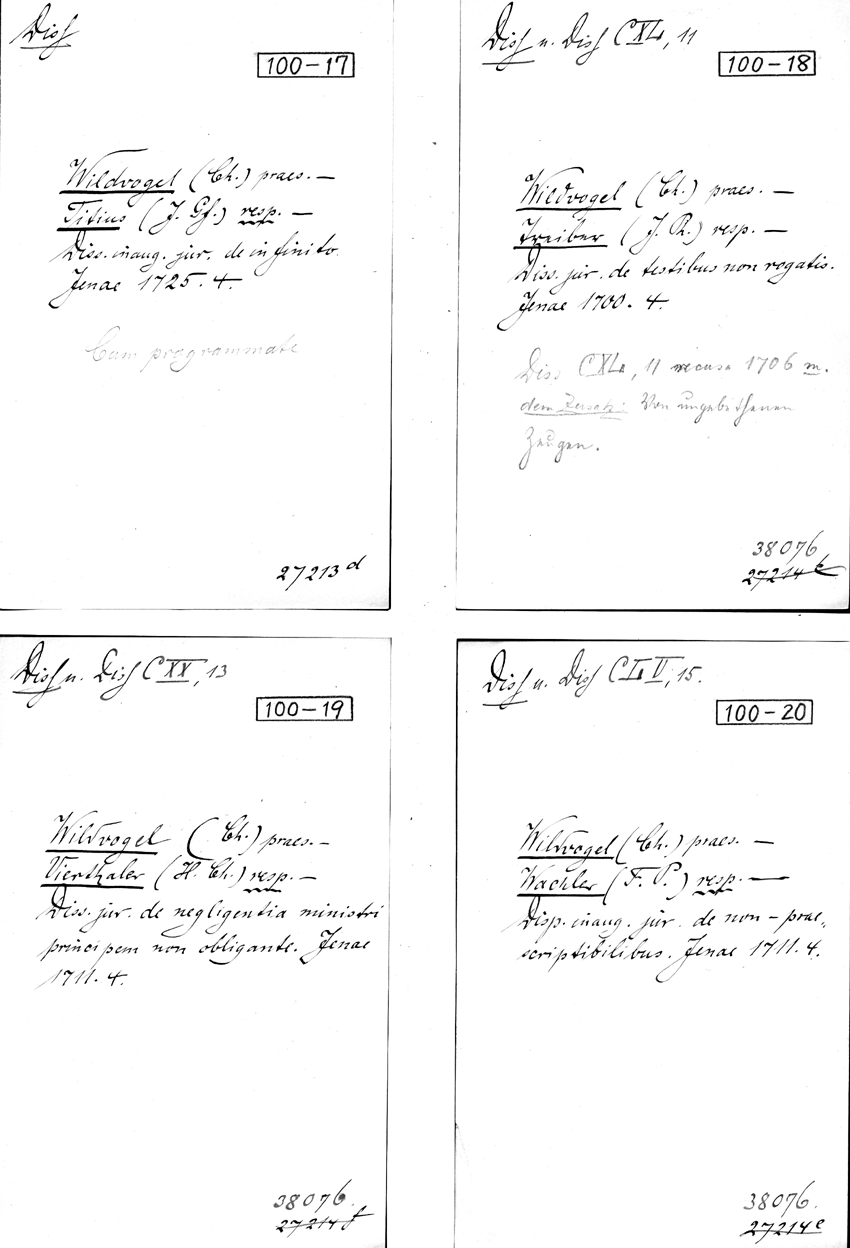 Diss
100-17
Wildvogel (Ch.) praes. —
Titius (J. Gf.) resp. —
Diss. inaug. jur. de infinito.
Jenae 1725. 4.
Cum programmate
27213 d
Diss u. Diss CXL, 11
100-18
Wildvogel (Ch.) praes. —
Treiber (J. R.) resp. —
Diss. jur. de testibus non rogatis.
Jenae 1700. 4.
Diss CXL, 11 recusa 1706 m.
dem Zusatz: Von ungebethenen
Zeugen.
38076
27214
Diss u. Diss CXX, 13
100-19
Wildvogel (Ch.) praes. —
Vierthaler (H. Ch.) resp. —
Diss. jur. de negligentia ministri
principem non obligante. Jenae
1711. 4.
38076.
27214 f
Diss u. Diss CLV, 15.
100-20
Wildvogel (Ch.) praes. —
Wachler (F. P.) resp. —
Disp. inaug. jur. de non-prae-
scriptibilibus. Jenae 1711. 4.
38076.
27214 e